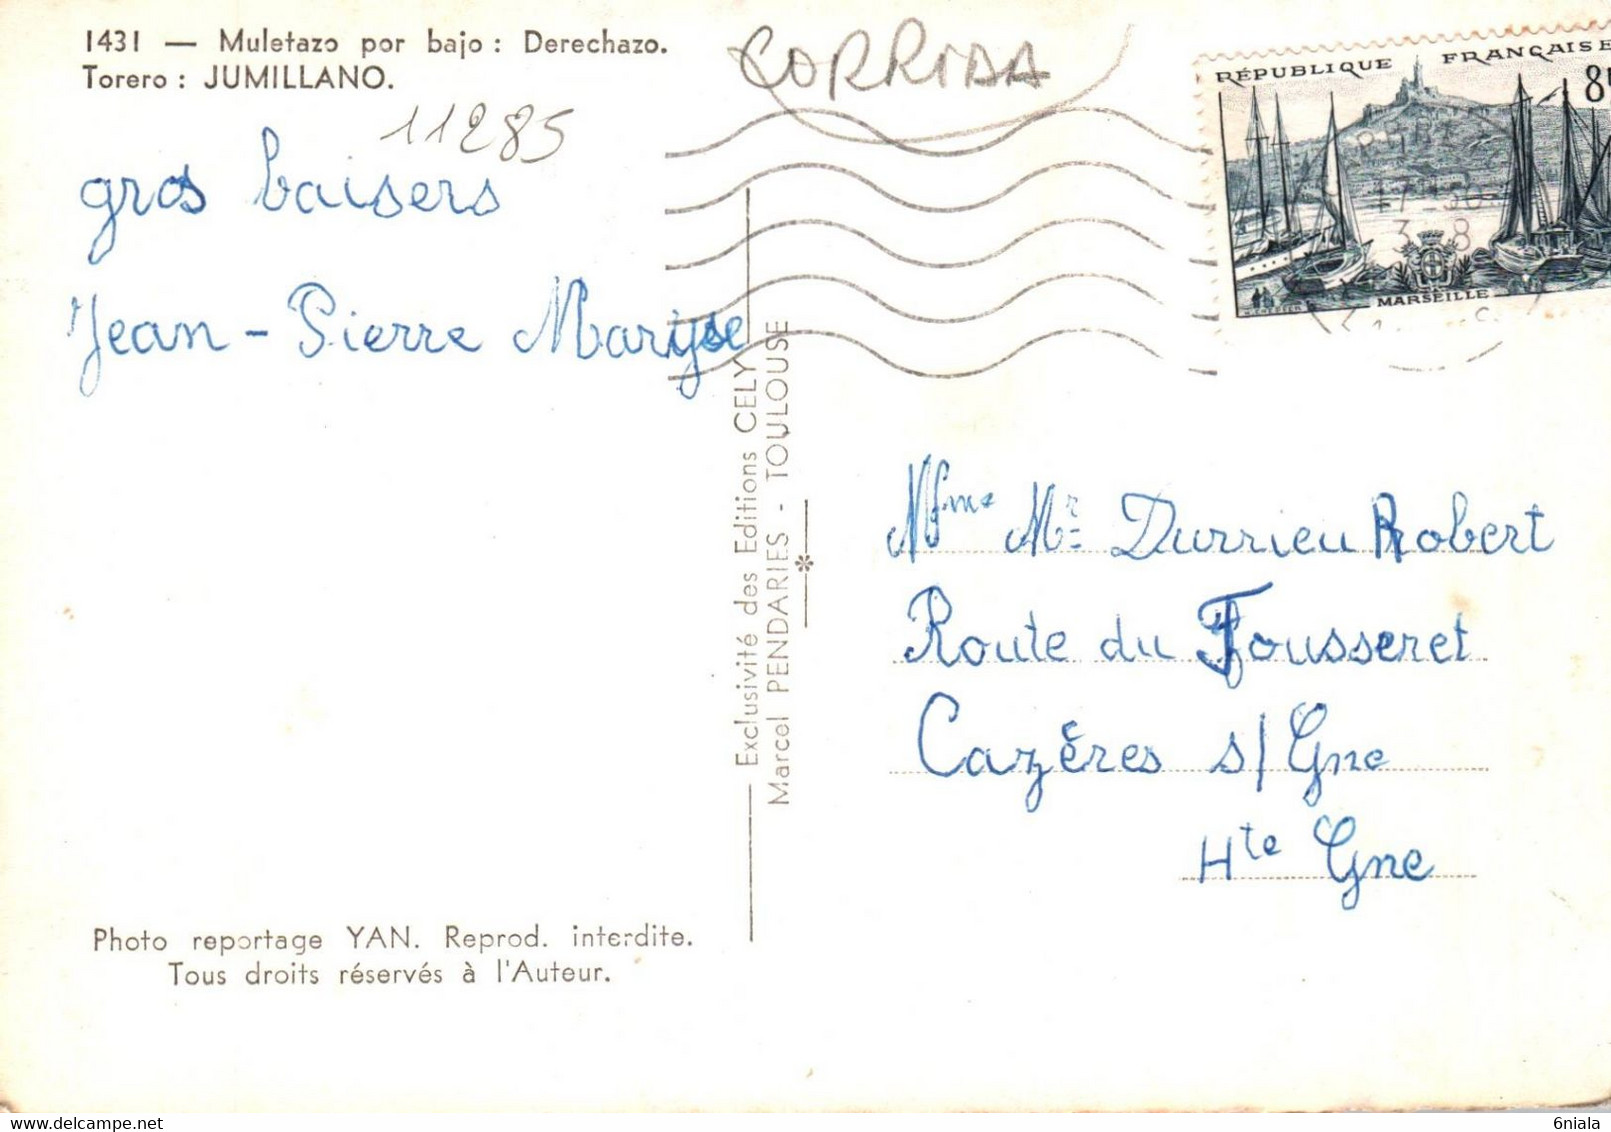 1431 — Muletazo por bajo : Derechazo.
Torero : JUMILLANO.
CORRIDA
11285
gros baisers
Jean - Pierre Maryse
RÉPUBLIQUE FRANÇAISE
8
17H30
3 8
MARSEILLE
Exclusivité des Editions CELY
Marcel PENDARIES - TOULOUSE
Mme Mr Durrieu Robert
Route du Fousseret
Cazères s/Gne
Hte Gne
Photo reportage YAN. Reprod. interdite.
Tous droits réservés à l'Auteur.
6niala